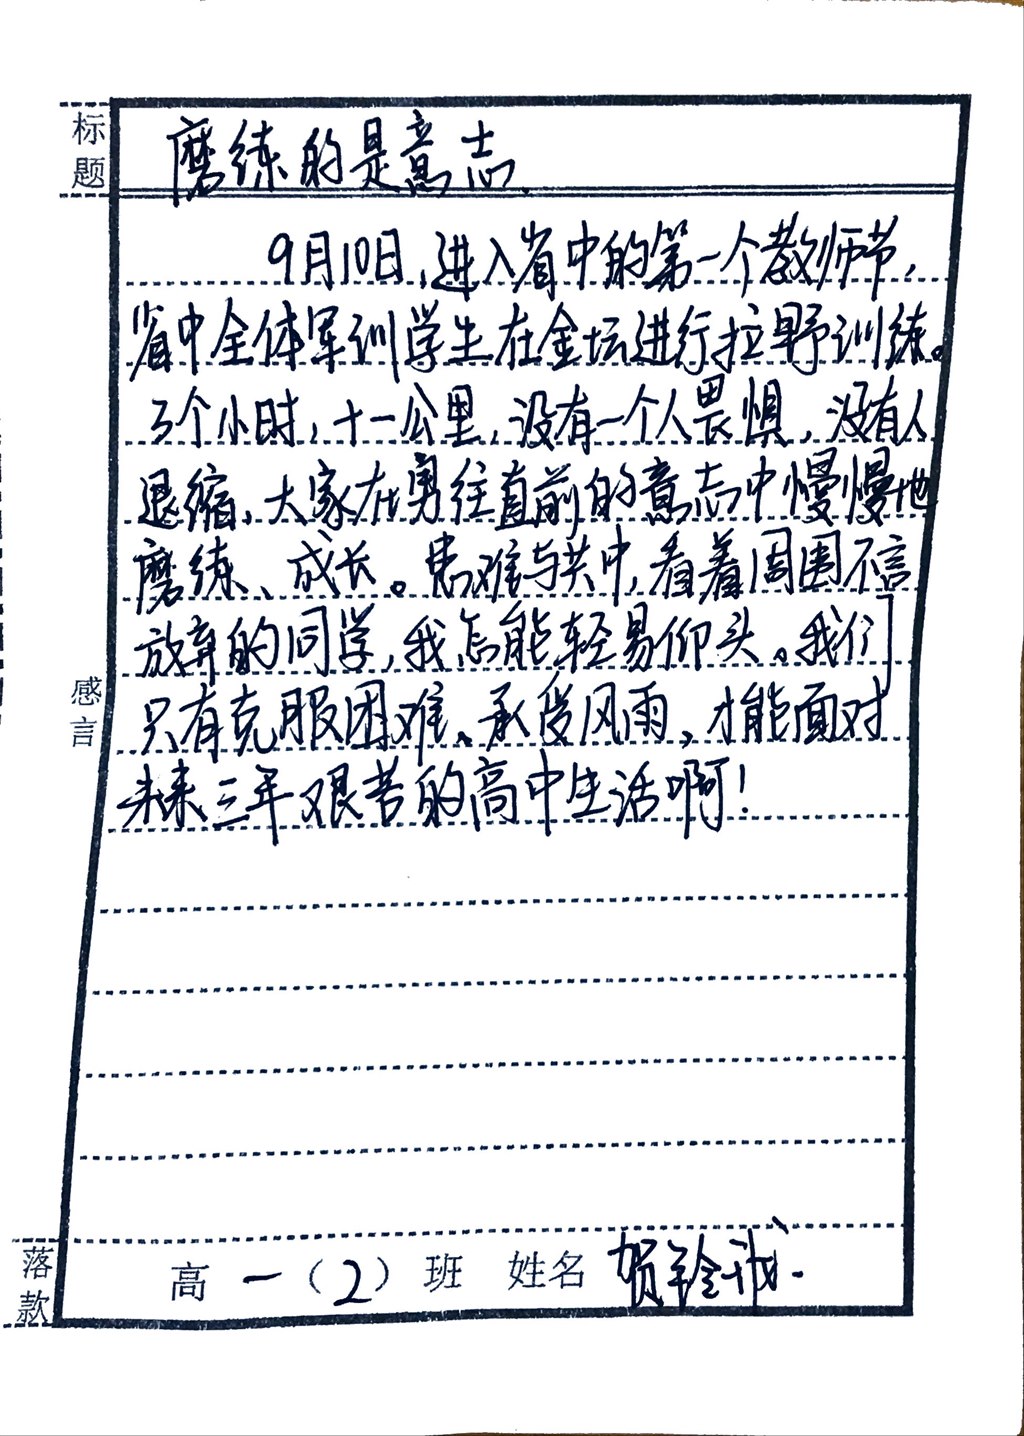 标题
磨练的是意志.
9月10日,进入省中的第一个教师节,
省中全体军训学生在金坛进行拉野训练。
3个小时,十一公里,没有一个人畏惧,没有人
退缩、大家在勇往直前的意志中慢慢地
磨练、成长。患难与共中,看着周围不言
放弃的同学,我怎能轻易仰头。我们
只有克服困难、承受风雨,才能面对
未来三年艰苦的高中生活啊!
感言
落款
高一(2)班 姓名 贺